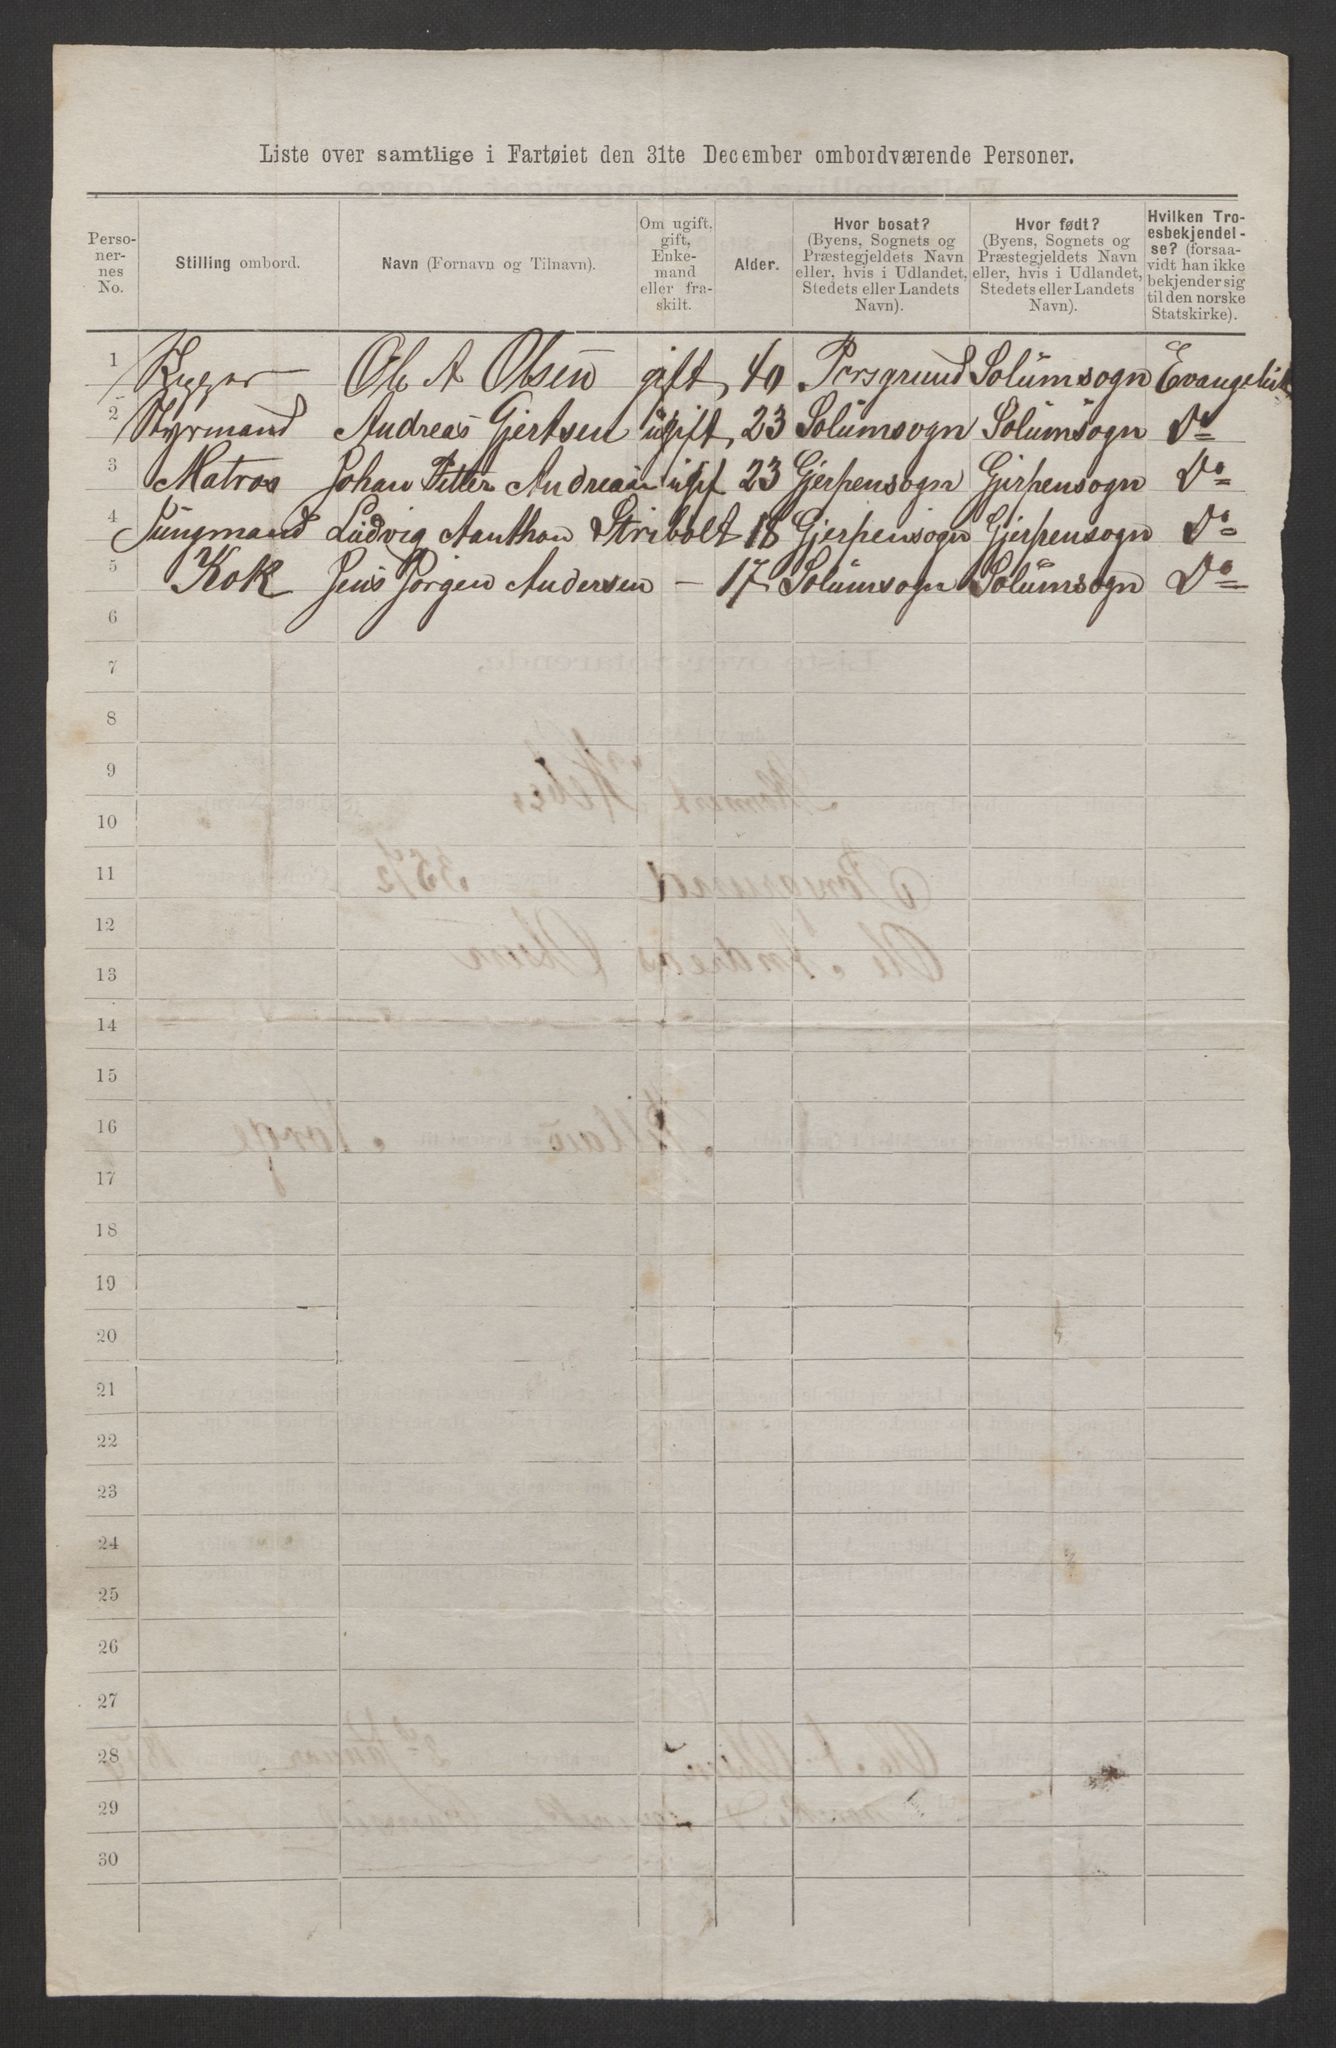 Liste over samtlige i Fartøiet den 31te December ombordværende Personer.
Perso-
ner-
nes
No.
Stilling ombord.
Navn (Fornavn og Tilnavn).
Om ugift,
gift,
Enke-
mand
eller fra-
skilt.
Alder.
Hvor bosat?
(Byens, Sognets og
Præstegjeldets Navn
eller, hvis i Udlandet,
Stedets eller Landets
Navn).
Hvor født?
(Byens, Sognets og
Præstegjeldets Navn
eller, hvis i Udlandet,
Stedets eller Landets
Navn).
Hvilken Tro-
esbekjendel-
se? (forsaa-
vidt han ikke
bekjender sig
til den norske
Statskirke).
1 Ole A Olsen gift 40 Porsgrund Solumsogn
2 Styrmand Andreas Gjertsen ugift 23 Solumsogn Solumsogn Do
3 Matros Johan Petter 23 Gjerpensogn Gjerpensogn Do
4 Jungmand Ludvig Aanthon Stribolt 18 Gjerpensogn Gjerpensogn Do
5 Kok Jens Jørgen Andersen — 17 Solumsogn Solumsogn Do
6
7
8
9
10
11
12
13
14
15
16
17
18
19
20
21
22
23
24
25
26
27
28
29
30